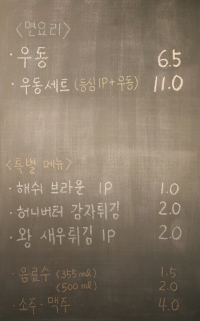 <면요리>
· 우동 6.5
· 우동세트 (등심 1P + 우동) 11.0
<특별 메뉴>
· 해쉬 브라운 1P 1.0
· 허니버터 감자튀김 2.0
· 왕 새우튀김 1P 2.0
· 음료수 (355ml) 1.5
(500ml) 2.0
· 소주 · 맥주 4.0